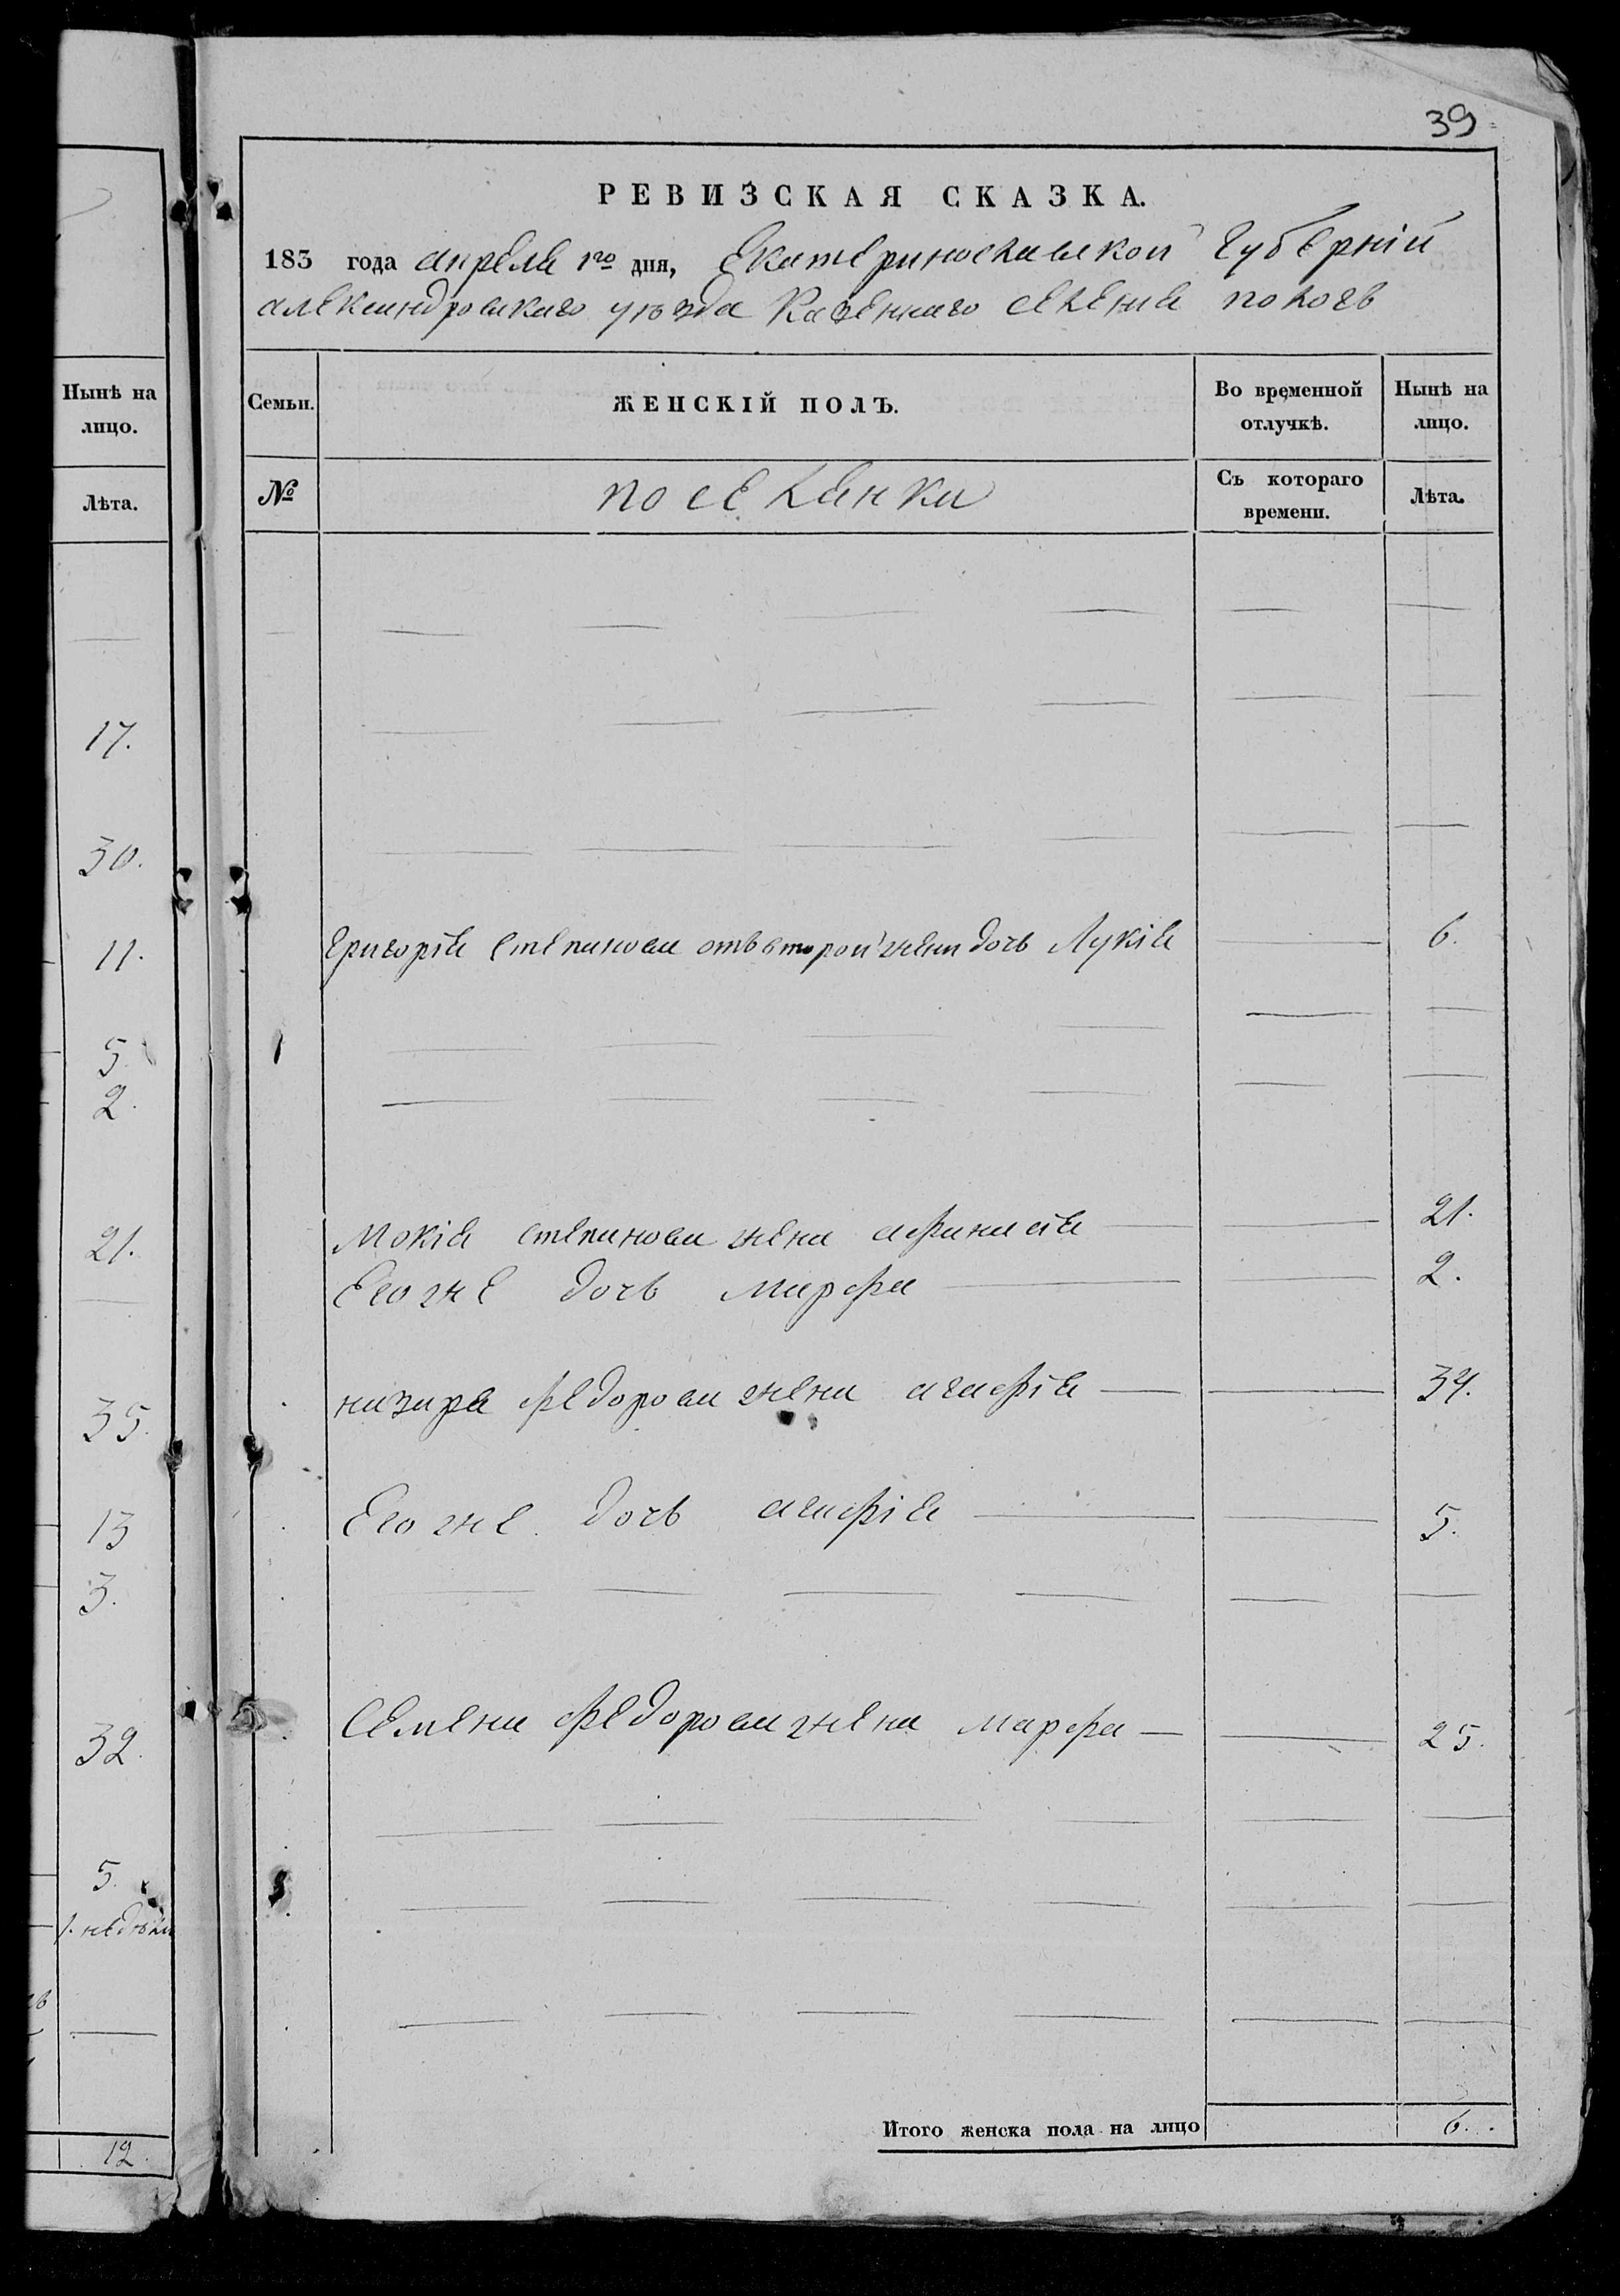 39
РЕВИЗСКАЯ СКАЗКА.
183 года апреля 1го дня, Екатеринославской Губернiй
александровскаго уѣзда Казеннаго селения пологъ
Нынѣ на лицо.
Лѣта.
Семьи.
ЖЕНСКІЙ ПОЛЪ.
Во временной отлучкѣ.
Нынѣ на лицо.
№
поселянки
Съ котораго времени.
Лѣта.
17.
30.
11.
Григорiя степанова отъ второй жены дочь Лукiя 6.
5.
2.
21.
Мокiя степанова жена афанасiя 21.
Его же дочь марфа 2.
35.
назара федорова жена агафiя 34.
13
Его же дочь агафiя 5.
3.
32.
Семена федорова жена марфа 25.
5.
1. недѣли
Итого женска пола на лицо 6.
12.